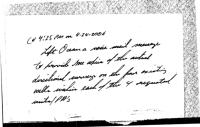 (@ 4:25 PM on 4-24-2001
Left Owen a voice mail message
to provide two copies of the actual
directional surveys on the four existing
wells within each of the 4 requested
units/PA's